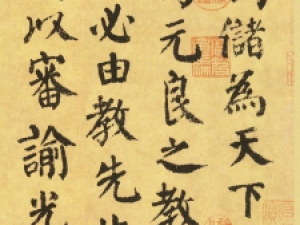 儲為天下
元良之教
必由教先
以審諭光